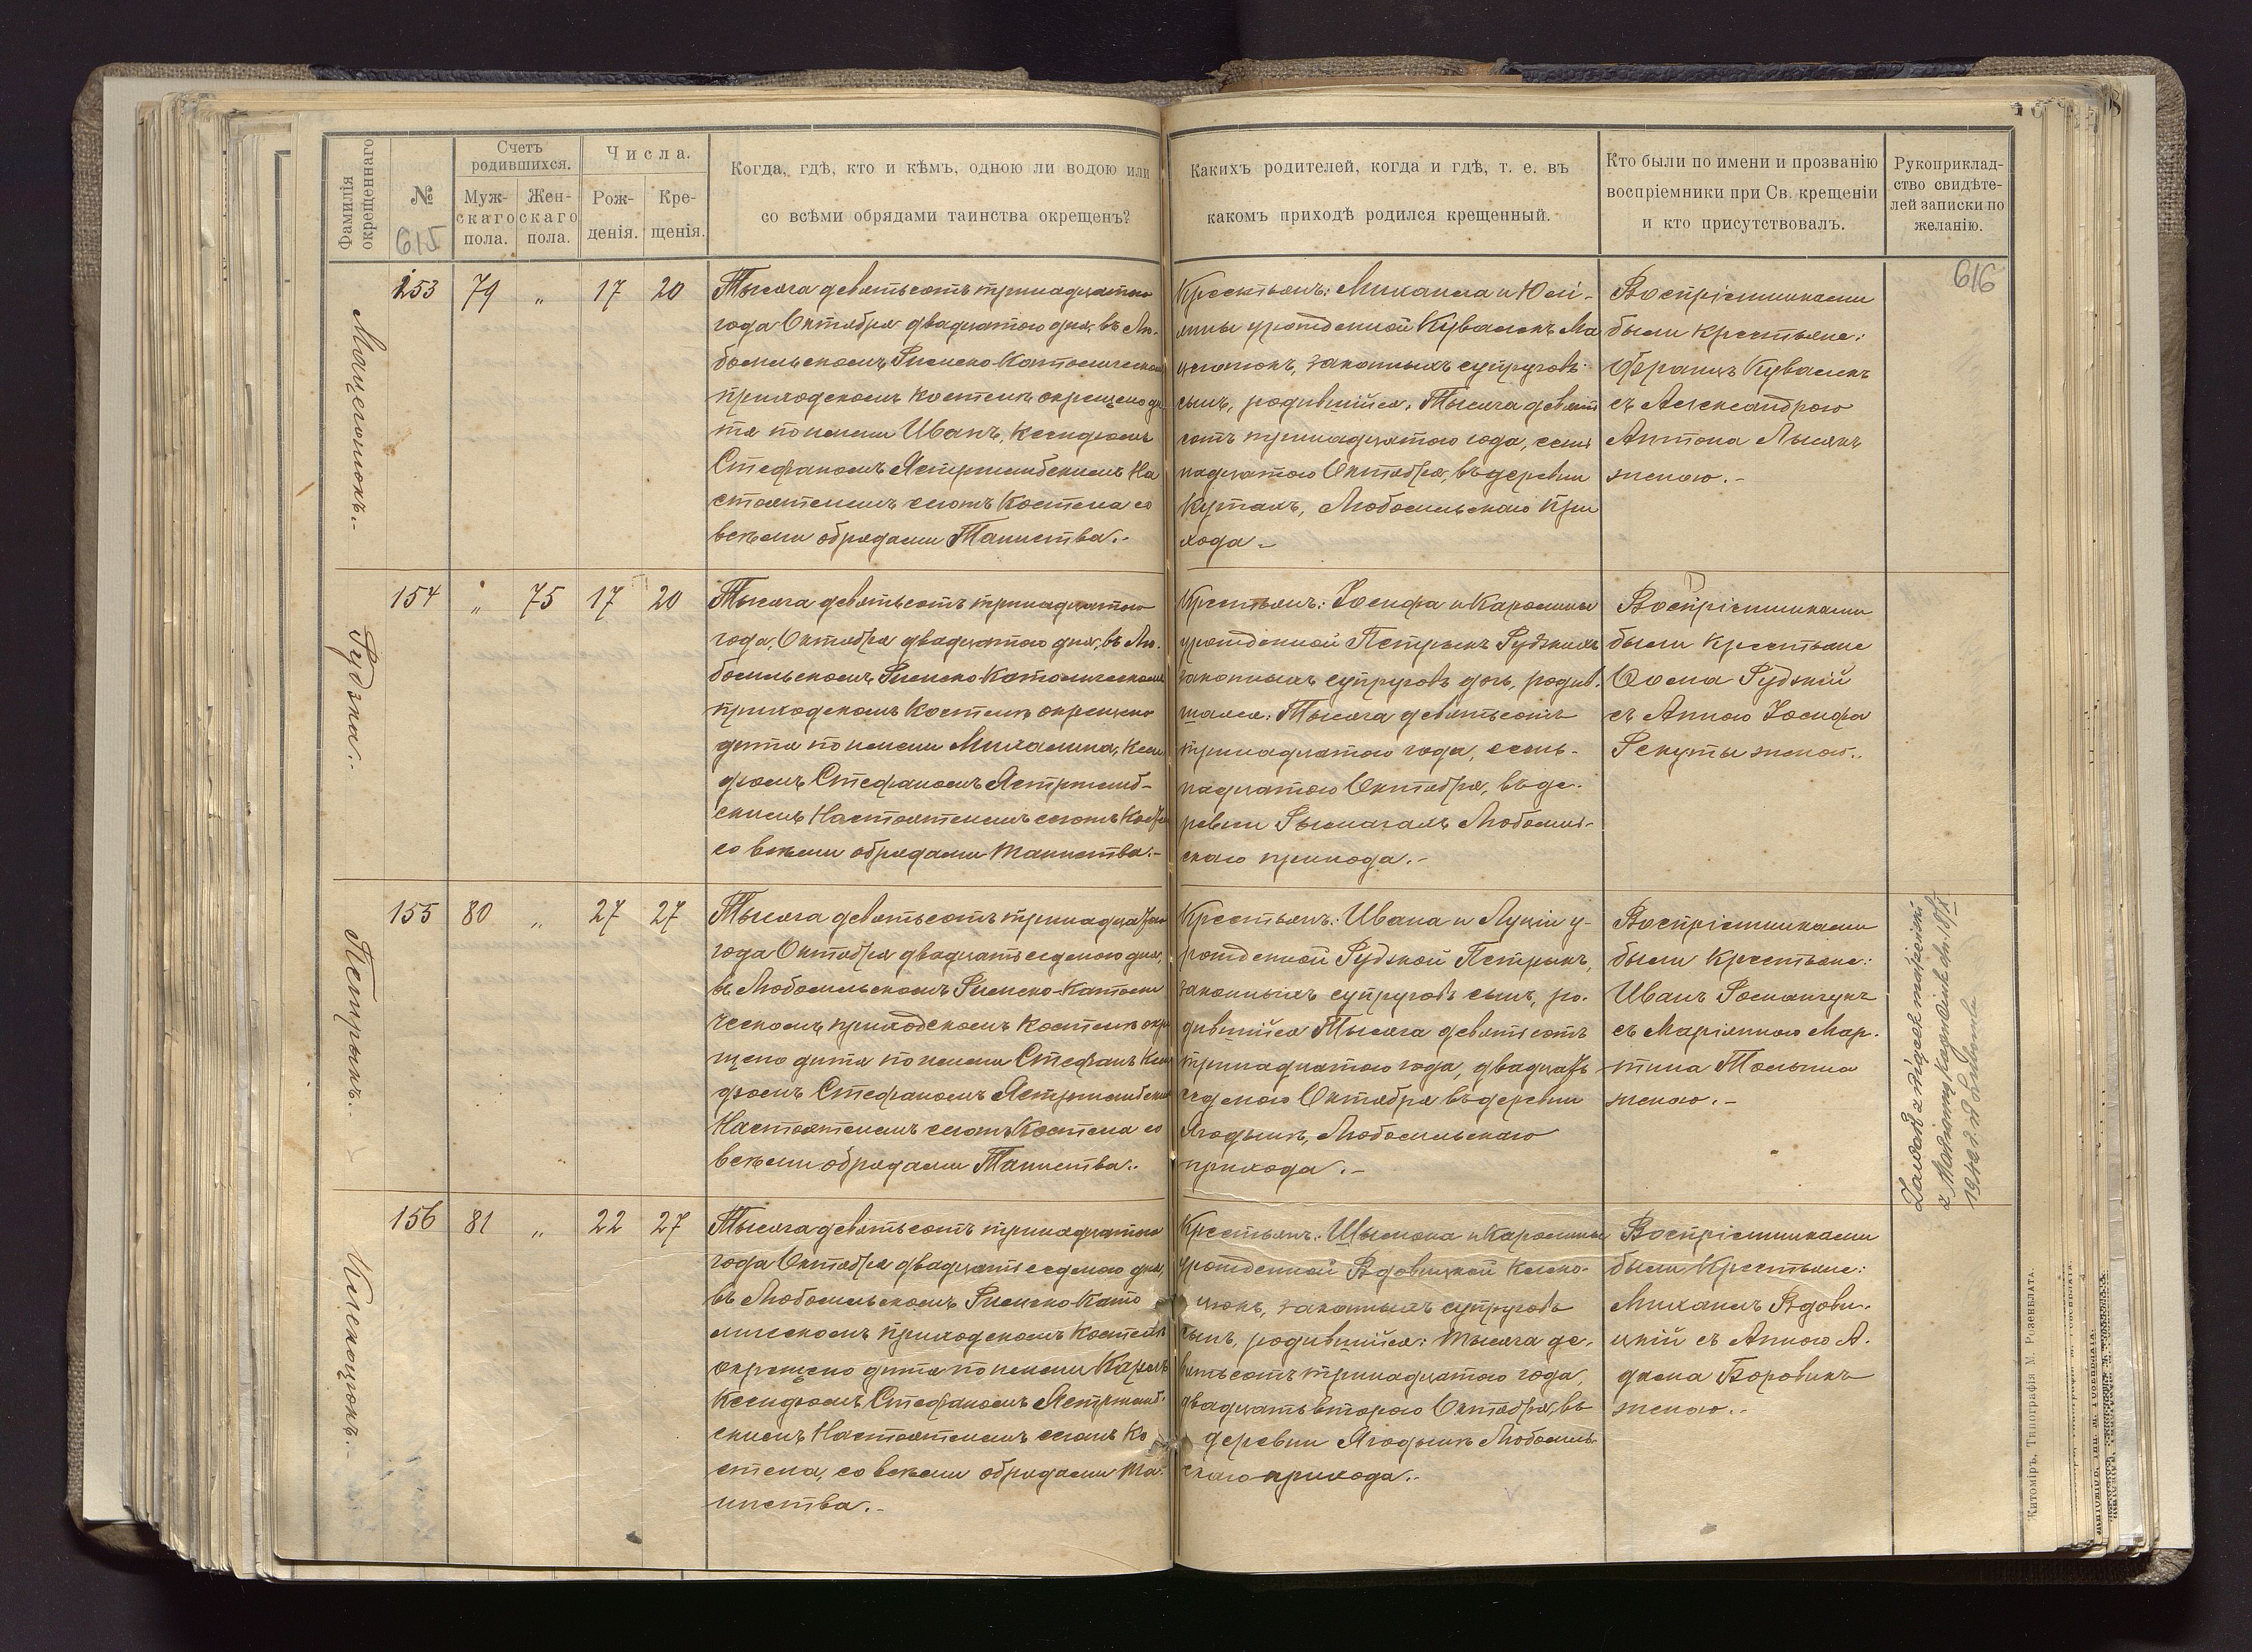 Фамилія
окрещеннаго
№
615
Счетъ
родившихся.
Муж-
скаго
пола.
Жен-
скаго
пола.
Числа.
Рож-
денія.
Кре-
щенія.
Когда, гдѣ, кто и кѣмъ, одною ли водою или
со всѣми обрядами таинства окрещенъ?
Какихъ родителей, когда и гдѣ, т. е. въ
какомъ приходѣ родился крещенный.
Кто были по имени и прозванію
воспріемники при Св. крещеніи
и кто присутствовалъ.
Рукоприклад-
ство свидѣте-
лей записки по
желанію.
616
153 79 „ 17 20
Тысяча девятьсотъ тринадцатого
года Октября двадцатого дня, въ Лю-
бомльскомъ Римско-Католическомъ
приходскомъ костелѣ окрещено ди-
тя по имени Иванъ, Ксендзомъ
Стефаномъ Ястржембскимъ На
стоятелемъ сего Костела со
всѣми обрядами Таинства.-
Крестьянъ: Михаила и Юлі-
янны урожденной Кувалекъ Ма
законныхъ супруговъ
сынъ, родившійся: Тысяча девять
сотъ тринадцатого года, сем
надцатого Октября, въ деревни
Кутахъ, Любомльскаго При
хода.-
Воспріемниками
были крестьяне:
Францъ Кувалекъ
съ Александрою
Антона Лысякъ
женою.-
154 „ 75 17 20
Рудзка.-
Тысяча девятьсотъ тринадцатого
года, Октября двадцатого дня, въ Лю-
бомльскомъ Римско-Католическомъ
приходскомъ Костелѣ окрещено
дитя по имени Михалина, Ксен
дзомъ Стефаномъ Ястржемб-
скимъ Настоятелемъ сего Костела
со всѣми обрядами таинства.-
Крестьянъ: Іосифа и Каролины
урожденной Петрыкъ Рудзкихъ
законныхъ супруговъ дочь, родив-
шаяся: Тысяча девятьсотъ
тринадцатого года, семь-
надцатого Октября, въ де-
ревни Рымачахъ Любомль-
скаго прихода.-
Воспріемниками
были Крестьяне
Ѳома Рудзкій
съ Анною Іосифа
Секуты женою.-
155 80 „ 27 27
Петрыкъ.-
Тысяча девятьсотъ тринадцатого
года Октября двадцать седмого дня,
въ Любомльскомъ Римско-Католи
ческомъ приходскомъ Костелѣ окре
щено дитя по имени Стефанъ Ксен
дзомъ Стефаномъ Ястржембскимъ
Настоятелемъ сего Костела со
всѣми обрядами Таинства.-
Крестьянъ: Ивана и Луціи у-
рожденной Рудзкой Петрыкъ,
законныхъ супруговъ сынъ, ро-
дившійся Тысяча девятьсотъ
тринадцатого года, двадцать
седмого Октября въ деревни
Ягодынѣ, Любомльскаго
прихода.-
Воспріемниками
были Крестьяне:
Иванъ Романчукъ
съ Маріянною Мар-
тина
женою.-
156 81 „ 22 27
Тысяча девятьсотъ тринадцатого
года Октября двадцать седмого дня,
въ Любомльскомъ Римско-Като
лическомъ приходскомъ Костелѣ
окрещено дитя по имени Кароль
Ксендзомъ Стефаномъ Ястржемб-
скимъ Настоятелемъ сего Ко
стела, со всѣми обрядами Та-
инства.-
Крестьянъ: Шымона и Каролины
урожденной Вдовицкой
законныхъ супруговъ
сынъ, родившійся: Тысяча де-
вятьсотъ тринадцатого года,
двадцать второго Октября, въ
деревни Ягодынѣ Любомль-
скаго прихода.-
Воспріемниками
были Крестьяне:
Михаилъ Вдови-
цкій съ Анною А-
дама Боровикъ
женою.-
Житоміръ, Типографія М. Розенблата.